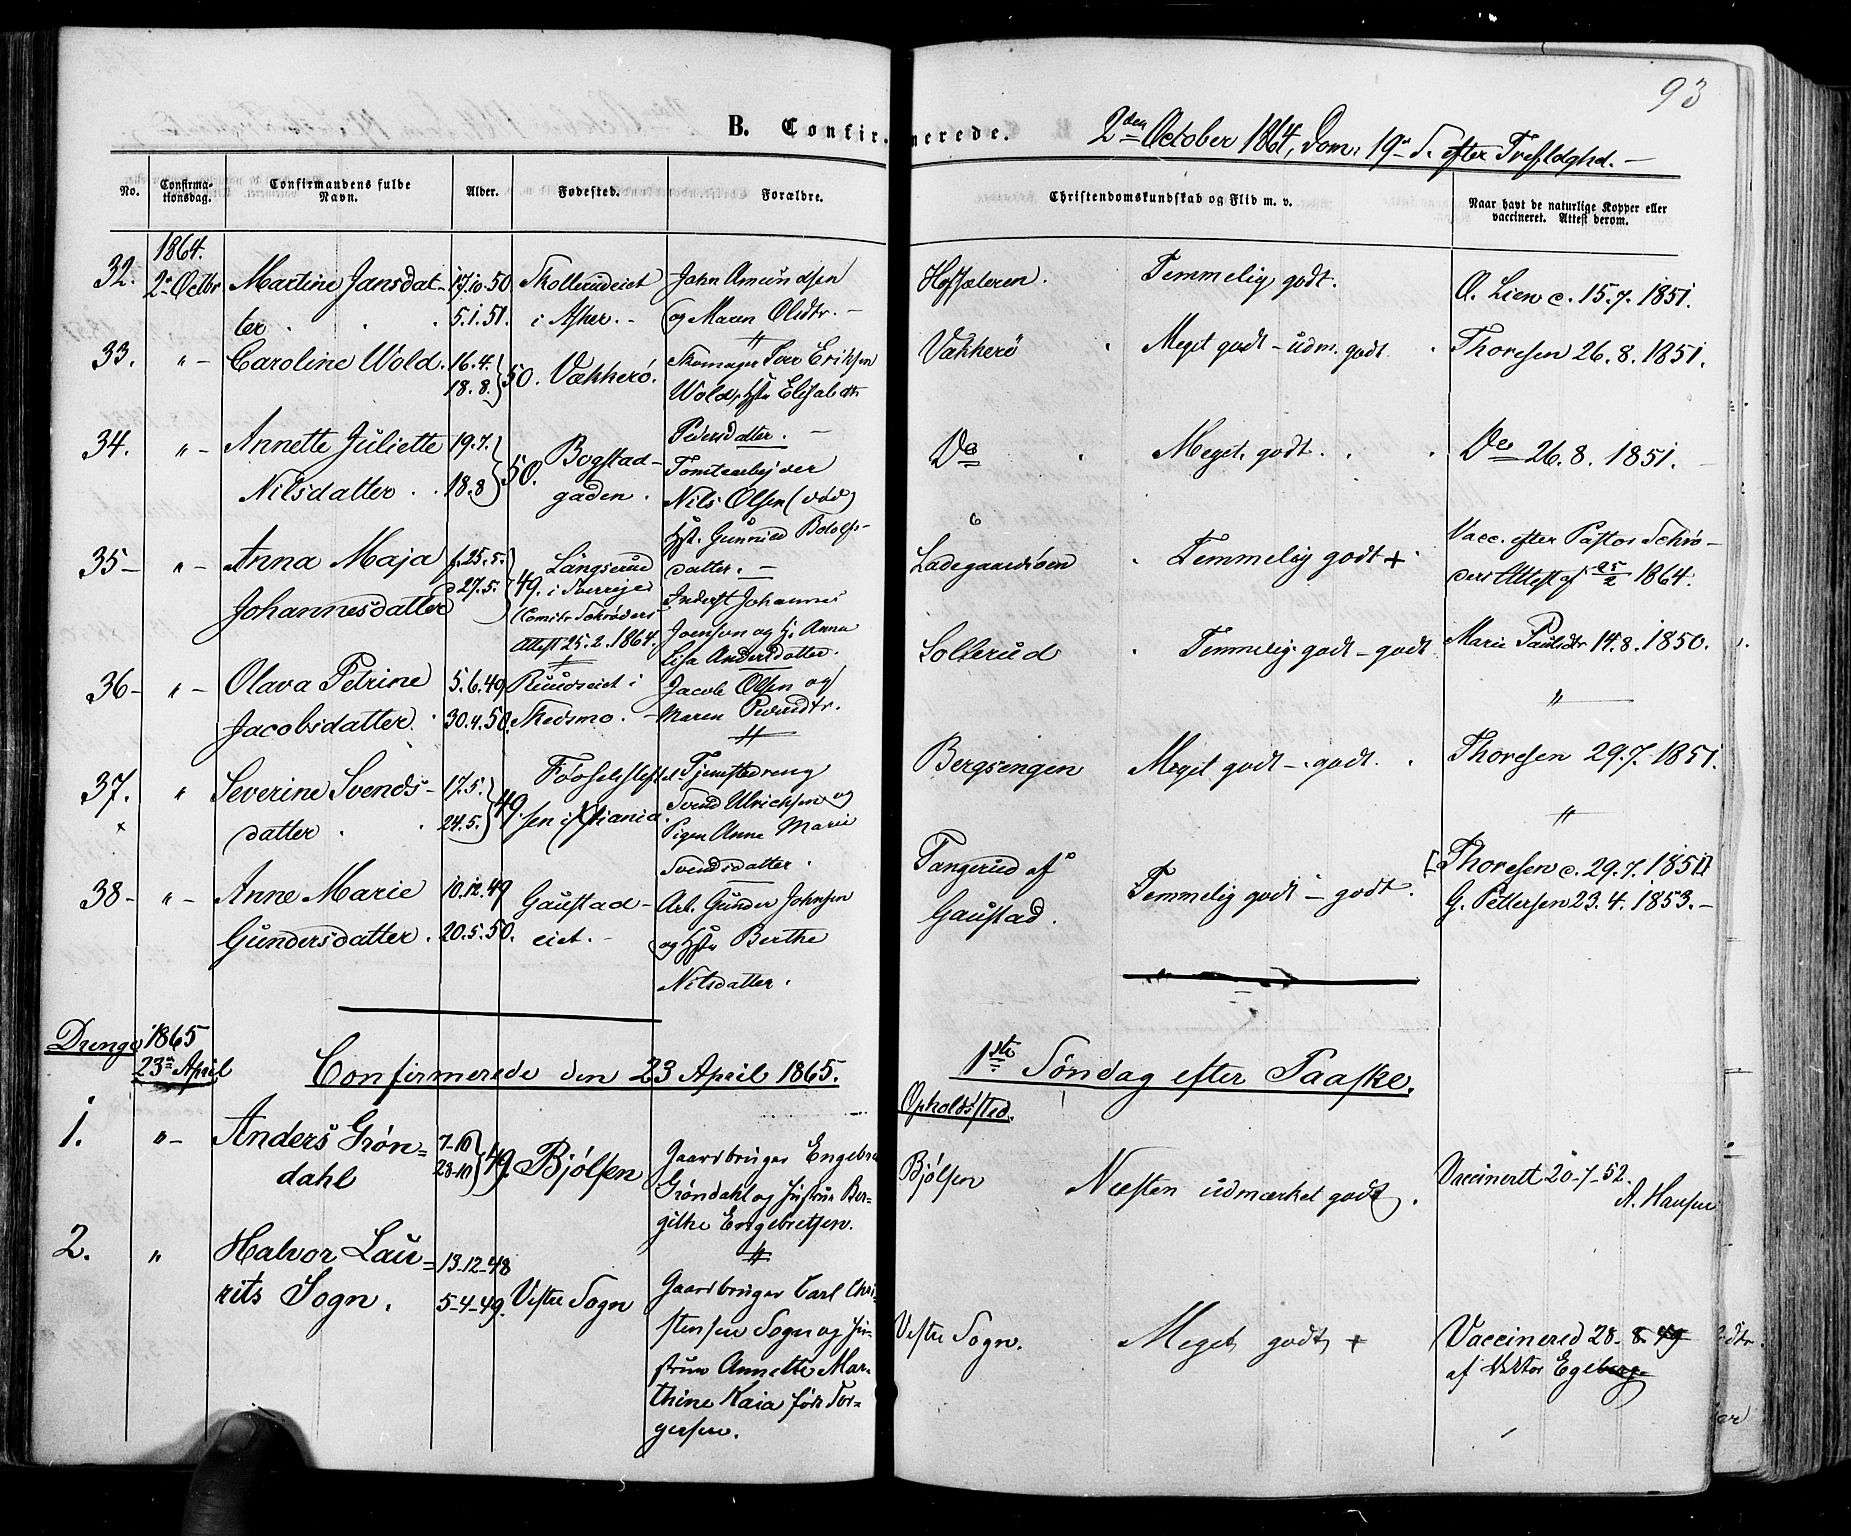 93
B. Confirmerede.
2den October 1864, Dom: 19de S. efter Trefoldghd. —
No.
Confirmationsdag.
Confirmandens fulde Navn.
Alder.
Fødested.
Forældre.
Christendomskundskab og Flid m. v.
Naar havt de naturlige Kopper eller vaccineret. Attest derom.
1864.
32. 2n Octbr Martine Jansdat- 17.10.50 Skollerudeiet John Amundsen Hofsæteren. Temmelig godt. O. Lien c. 15.7. 1851.
ter 5.1.51. i Asker. — og Maren Olsdtr. —
33. " — Caroline Wold. 16.4. 50. Vækkerö. Skomager Lars Eriksen Vækkerö Meget godt — udm. godt Thoresen 26.8.1851.
18.8. Wold, Hstr Elisabeth
Pedersdatter. —
34. " — Annette Juliette 19.7. 50. Bogstad- Tomtearbejder Do Meget godt. Do 26.8.1851. —
Nilsdatter 18.8 gaden. Nils Olsen (død)
Hst. Gunnild Bolofs-
datter. —
35 — " — Anna Maja f. 25.5. 49. Långserud Inderst Johannes Ladegaardsøen Temmelig godt + Vacc. efter Pastor Schrø-
Johannesdatter d 27.5. i Sverrige Joenson og H. Anna ders Attest af 25/2 1864.
(Comitr Schrøders Lisa Andersdatter.
Attest 25.2.1864.
36 — " — Olava Petrine 5.6.49 Ruudseiet i Jacob Olsen og Sollerud Temmelig godt — godt Marie Paulsdtr 14.8.1850.
Jacobsdatter. 30.4.50. Skedsmo. — Maren Pedersdtr.
37. " Severine Svends- 17.5. 49. Fødselsstiftel- Tjenestedreng Bergsengen Meget godt — godt. Thoresen 29.7.1851.
datter 24.5. sen i Xtiania. Svend Ulrichsen og
Pigen Anne Marie
Svendsdatter.
38 — " — Anne Marie 10.12.49 Gaustad- Arb. Gunder Johnsen Tangerud af Temmelig godt — godt. [Thoresen c. 29.7.1851]
Gundersdatter. 20.5.50. eiet. — og Hstr Berthe Gaustad. G. Pettersen 23.4.1853. —
Nilsdatter.
Drenge 1865
23de April Confirmerede den 23 April 1865. 1ste Søndag efter Paaske.
Opholdssted.
1. " — Anders Grøn- 7-10 49. Bjølsen Gaardbruger Engebre Bjølsen Næsten udmærket godt. Vaccineret 20-7-52.
dahl 28-10 Grøndahl og Hustrue Ber- A. Hansen
githe Engebretsen.
2. " Halvor Lau- 13-12-48 Vestre Sogn Gaardbruger Carl Chri- Vestre Sogn. Meget godt + Vaccinered 28-8-49
rits Sogn. 5-4-49. stensen Sogn og Hu- af Doktor Egeberg
strue Annette Mar-
thine Kaia født Tor-
gersen.